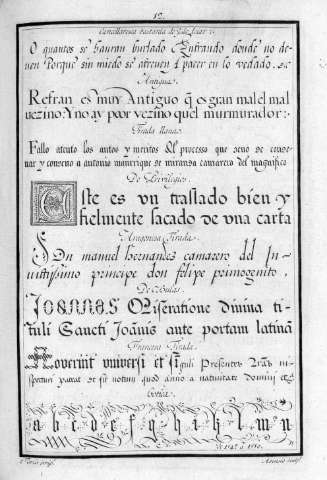 12.
Cancellaresca bastarda de
O quantos se hauran burlado Entrando donde no de-
uen Porque sin miedo se atreuen A pacer en lo vedado. &c
Antigua.
Refran es muy Antiguo q̃ es gran mal el mal
vezino: Y no ay peor vezino quel murmurador:-
Tirada llana.
Fallo atento los autos y meritos del processo que deuo de conde-
nar y condeno a antonio manrrique de miranda camarero del magnifico
De Priuilegios.
Este es vn traslado bien y
fielmente sacado de vna carta
Aragonesa Tirada.
Don manuel hernandes camarero del In-
uictissimo principe don felipe primogenito.
De Bulas.
Joannes Miseratione diuina ti-
tuli Sancti Joãnis ante portam latinã
Francesa Tirada.
Nouerint vniuersi et singuli Presentes
pateat et sit notum quod anno a natiuitate domini
Gotica.
a b c d e f g h i k l m n